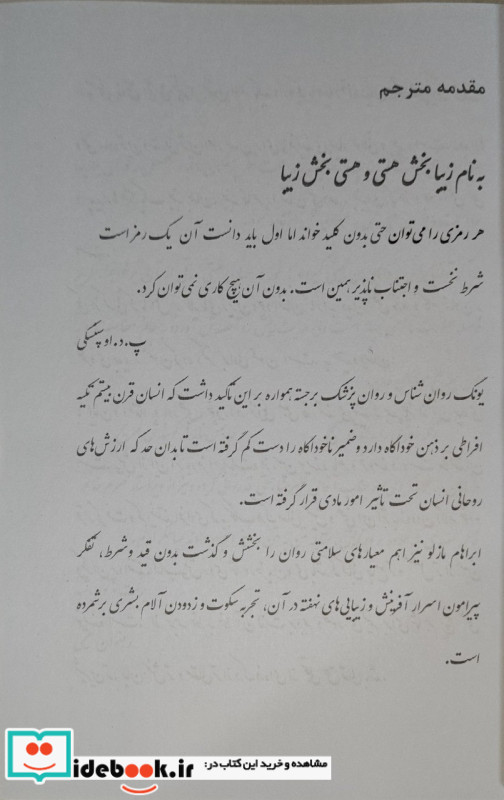 مقدمه مترجم
به نام زیبا بخش هستی و هستی بخش زیبا
هر رمزی را می‌توان حتی بدون کلید خواند اما اول باید دانست آن یک رمز است
شرط نخست و اجتناب ناپذیر همین است. بدون آن هیچ کاری نمی‌توان کرد.
پ.د.اوسپنسکی
یونگ روان شناس و روان پزشک برجسته همواره بر این تأکید داشت که انسان قرن بیستم تکیه
افراطی بر ذهن خودآگاه دارد و ضمیر ناخودآگاه را دست کم گرفته است تا بدان حد که ارزش‌های
روحانی انسان تحت تاثیر امور مادی قرار گرفته است.
ابراهام مازلو نیز اهم معیارهای سلامتی روان را بخشش و گذشت بدون قید و شرط، تفکر
پیرامون اسرار آفرینش و زیبایی‌های نهفته در آن، تجربه سکوت و زدودن آلام بشری برشمرده
است.
مشاهده و خرید این کتاب در:
idebook.ir